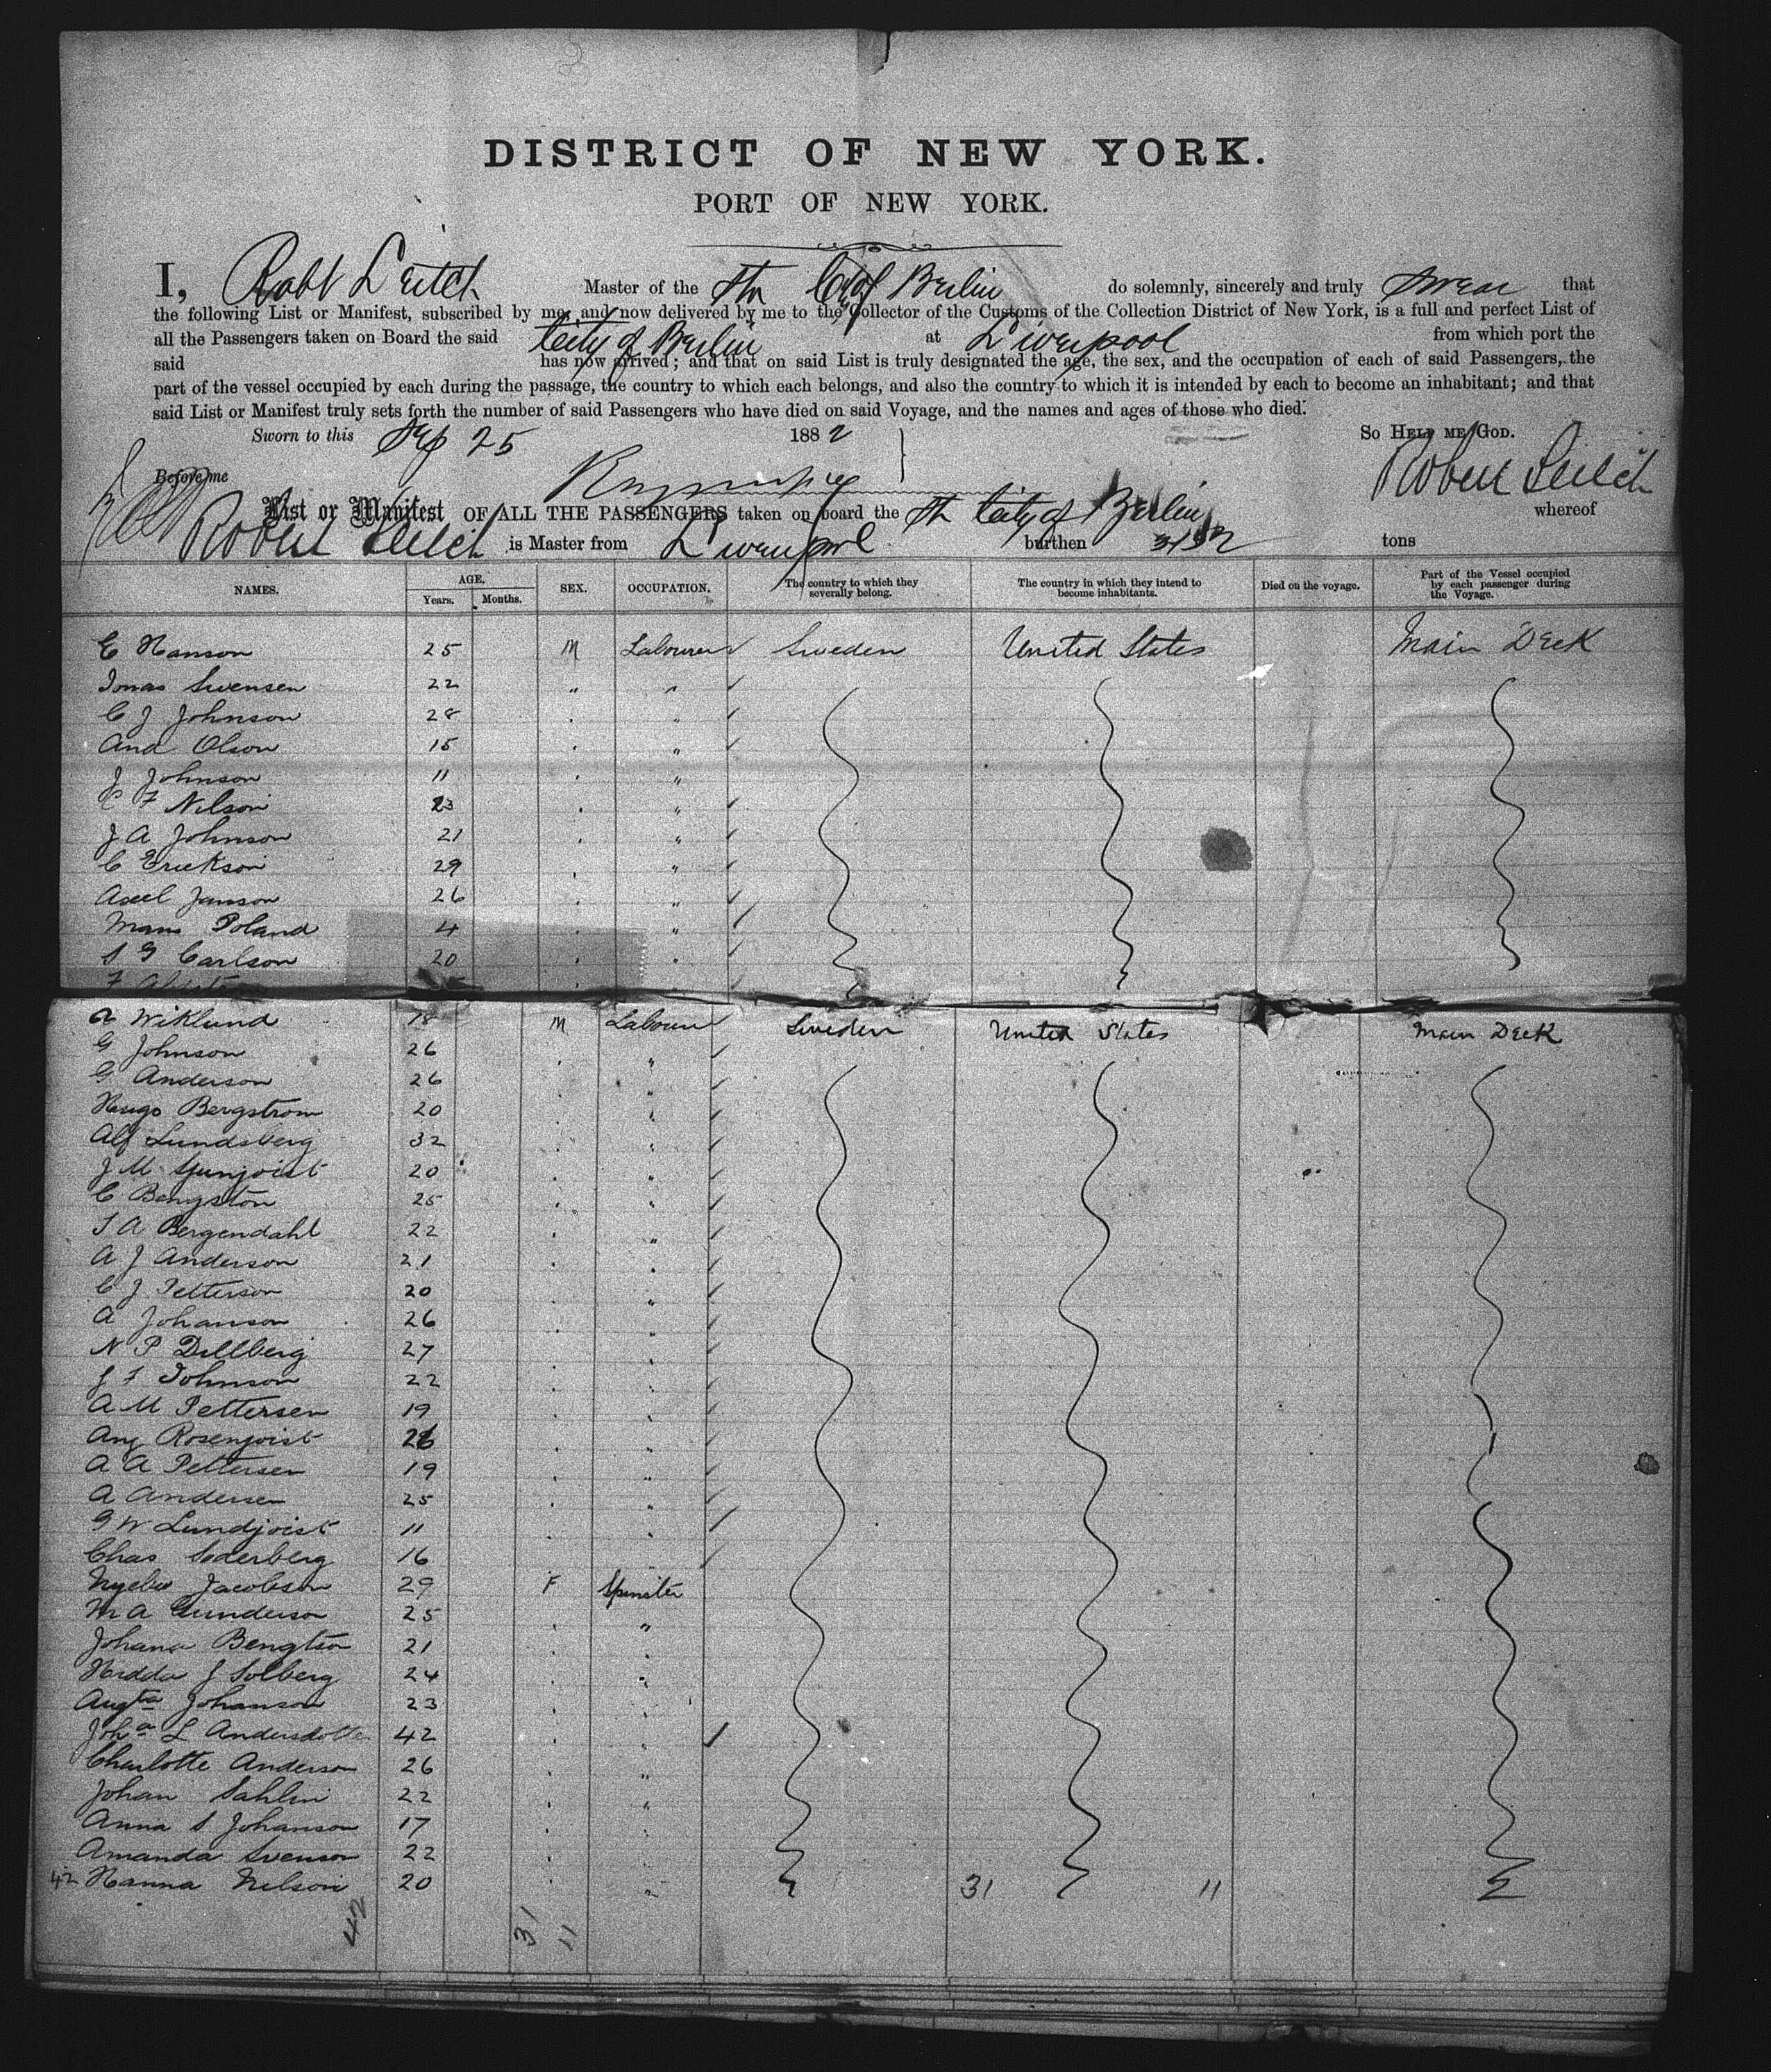 DISTRICT OF NEW YORK.
PORT OF NEW YORK.
I, Robt Leitch Master of the Str City of Berlin do solemnly, sincerely and truly swear that
the following List or Manifest, subscribed by me, and now delivered by me to the Collector of the Customs of the Collection District of New York, is a full and perfect List of
all the Passengers taken on Board the said City of Berlin at Liverpool from which port the
said has now arrived; and that on said List is truly designated the age, the sex, and the occupation of each of said Passengers, the
part of the vessel occupied by each during the passage, the country to which each belongs, and also the country to which it is intended by each to become an inhabitant; and that
said List or Manifest truly sets forth the number of said Passengers who have died on said Voyage, and the names and ages of those who died.
Sworn to this Sep 25 1882 So HELP ME GOD.
Before me Robert Leitch
List or Manifest OF ALL THE PASSENGERS taken on board the Str City of Berlin whereof
Robert Leitch is Master from Liverpool burthen tons
NAMES. AGE. Years. Months. SEX. OCCUPATION. The country to which they severally belong. The country in which they intend to become inhabitants. Died on the voyage. Part of the Vessel occupied by each passenger during the Voyage.
C Hanson 25 M Labourer Sweden United States Main Deck
Jonas Swensen 22 " "
C J Johnson 28 " "
And Olson 15 " "
J Johnson 11 " "
C F Nilson 23 " "
J A Johnson 21 " "
C Erickson 29 " "
Axel Janson 26 " "
Mans Poland 4 " "
S G Carlson 20 " "
F
A Wiklund 18 M Labourer Sweden United States Main Deck
G Johnson 26 " "
G Anderson 26 " "
Hugo Bergstrom 20 " "
Alf Lundsberg 32 " "
J M 20 " "
C Bengston 25 " "
S A Bergendahl 22 " "
A J Anderson 21 " "
C J Petterson 20 " "
A Johanson 26 " "
N P Dillberg 27 " "
J F Johnson 22 " "
A M Pettersen 19 " "
Aug Rosenqvist 26 " "
A A Pettersen 19 " "
A Andersen 25 " "
G W Lundqvist 11 " "
Chas Soderberg 16 " "
Jacobson 29 F Spinster
M A Gunderson 25 " "
Johana Bengtson 21 " "
Hedda J Solberg 24 " "
Augta Johanson 23 " "
Joha L Andersdotter 42 " "
Charlotte Anderson 26 " "
Johan Sahlin 22 " "
Anna S Johanson 17 " "
Amanda Svenson 22 " "
42 Hanna Nelson 20 " " 31 11
42 31 11